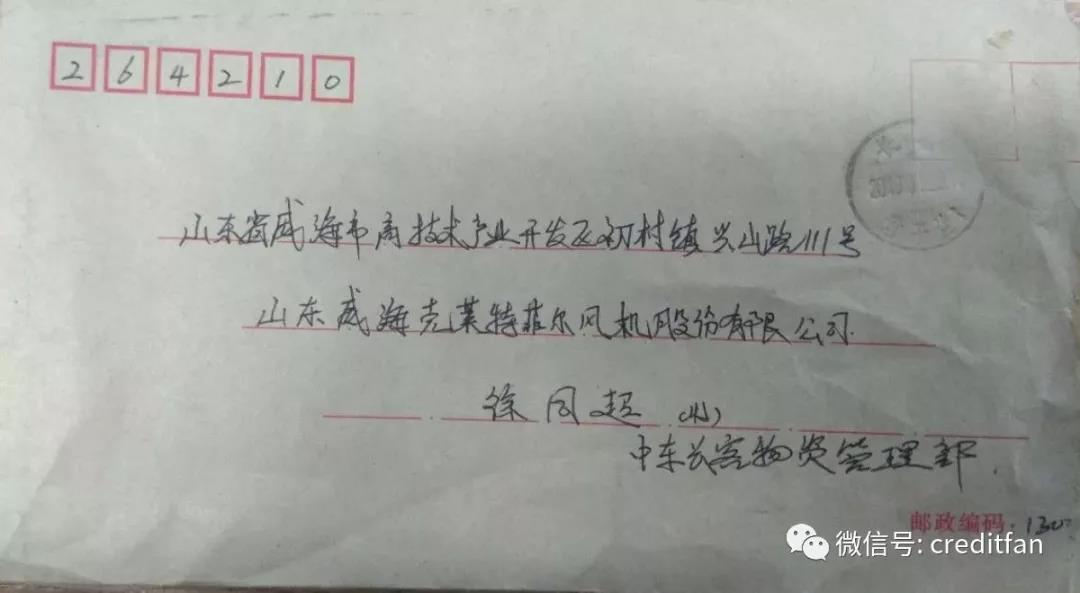 264210
山东省威海市高技术产业开发区初村镇兴山路111号
山东威海克莱特菲尔风机股份有限公司
徐同超(收)
中车长客物资管理部
邮政编码 130
微信号: creditfan